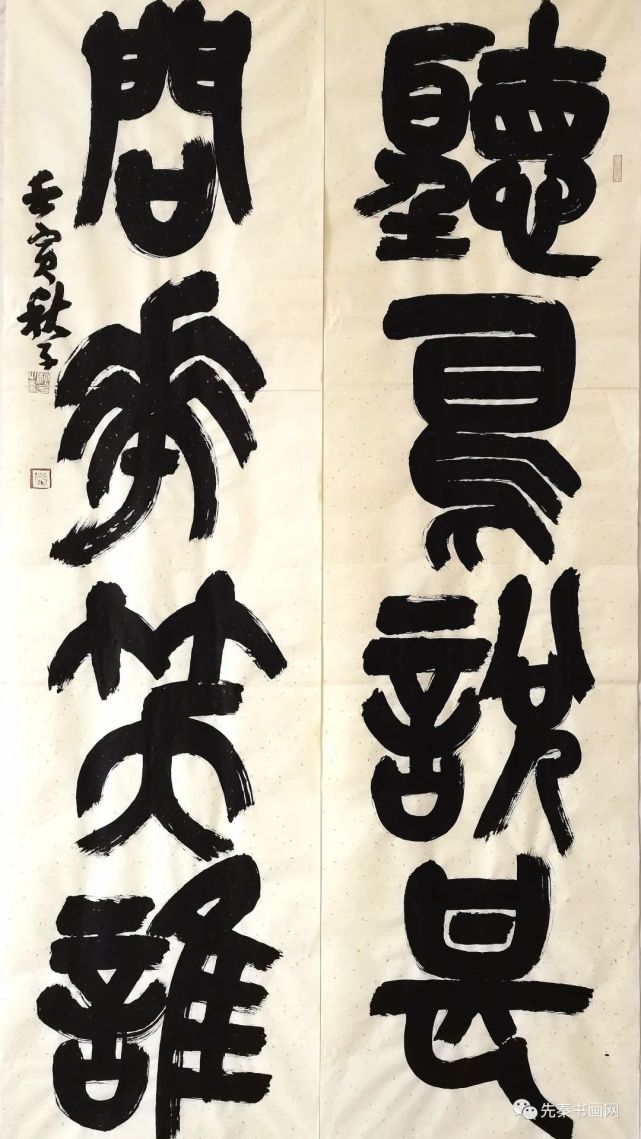 聽鳥說甚
問花笑誰
壬寅秋
先秦书画网